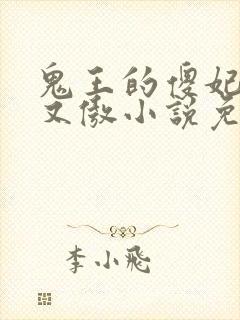 鬼王的傻妃
文傲小说免
李小飛